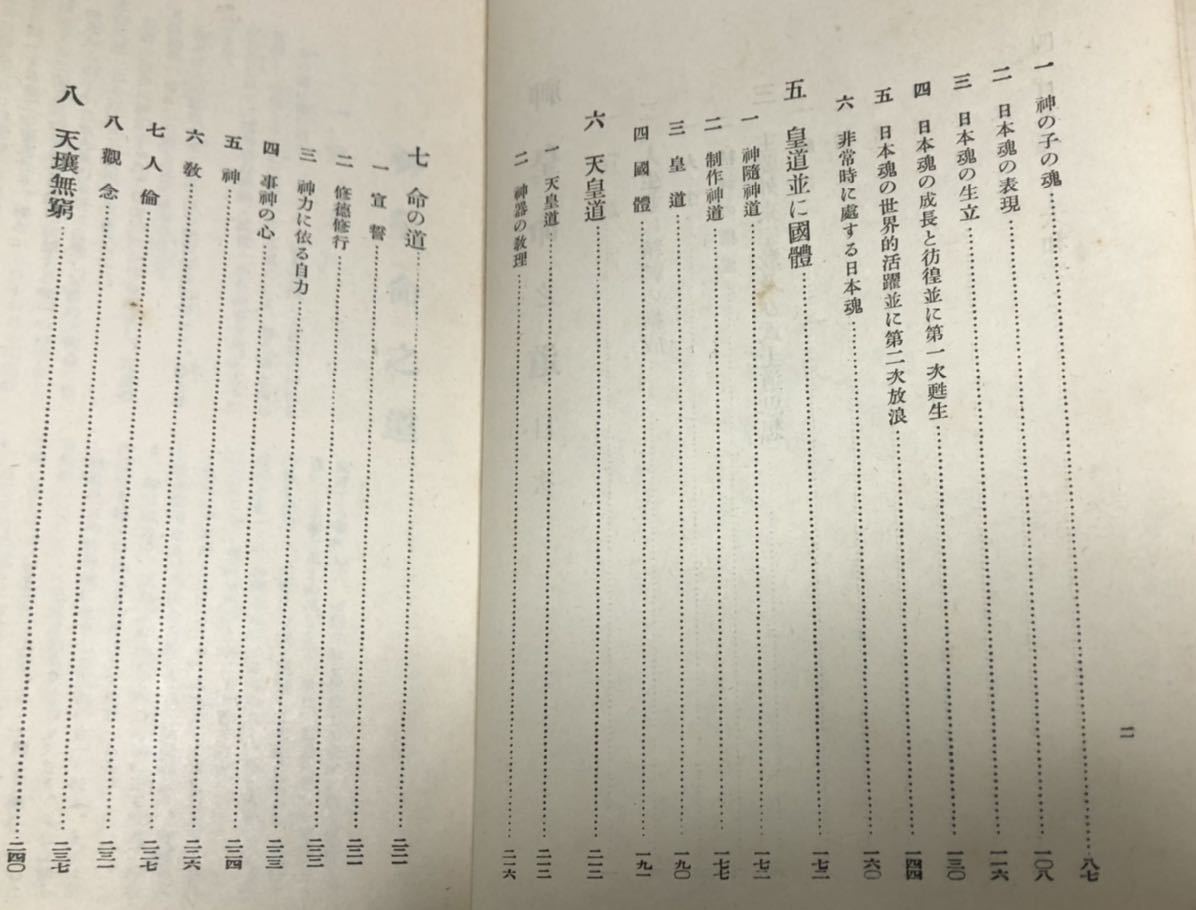 二
一 神の子の魂……八七
二 日本魂の表現……一〇八
三 日本魂の生立……一一六
四 日本魂の成長と彷徨並に第一次甦生……一三〇
五 日本魂の世界的活躍並に第二次放浪……一四四
六 非常時に處する日本魂……一六〇
五 皇道並に國體……一七二
一 神隨神道……一七二
二 制作神道……一七七
三 皇道……一九〇
四 國體……一九一
六 天皇道……二一二
一 天皇道……二一二
二 神器の敎理……二一六
七 命の道……二二一
一 宣誓……二二一
二 修德修行……二二二
三 神力に依る自力……二二三
四 事神の心……二二四
五 神……二二六
六 敎……二二七
七 人倫……二三一
八 觀念……二三七
八 天壤無窮……二四〇